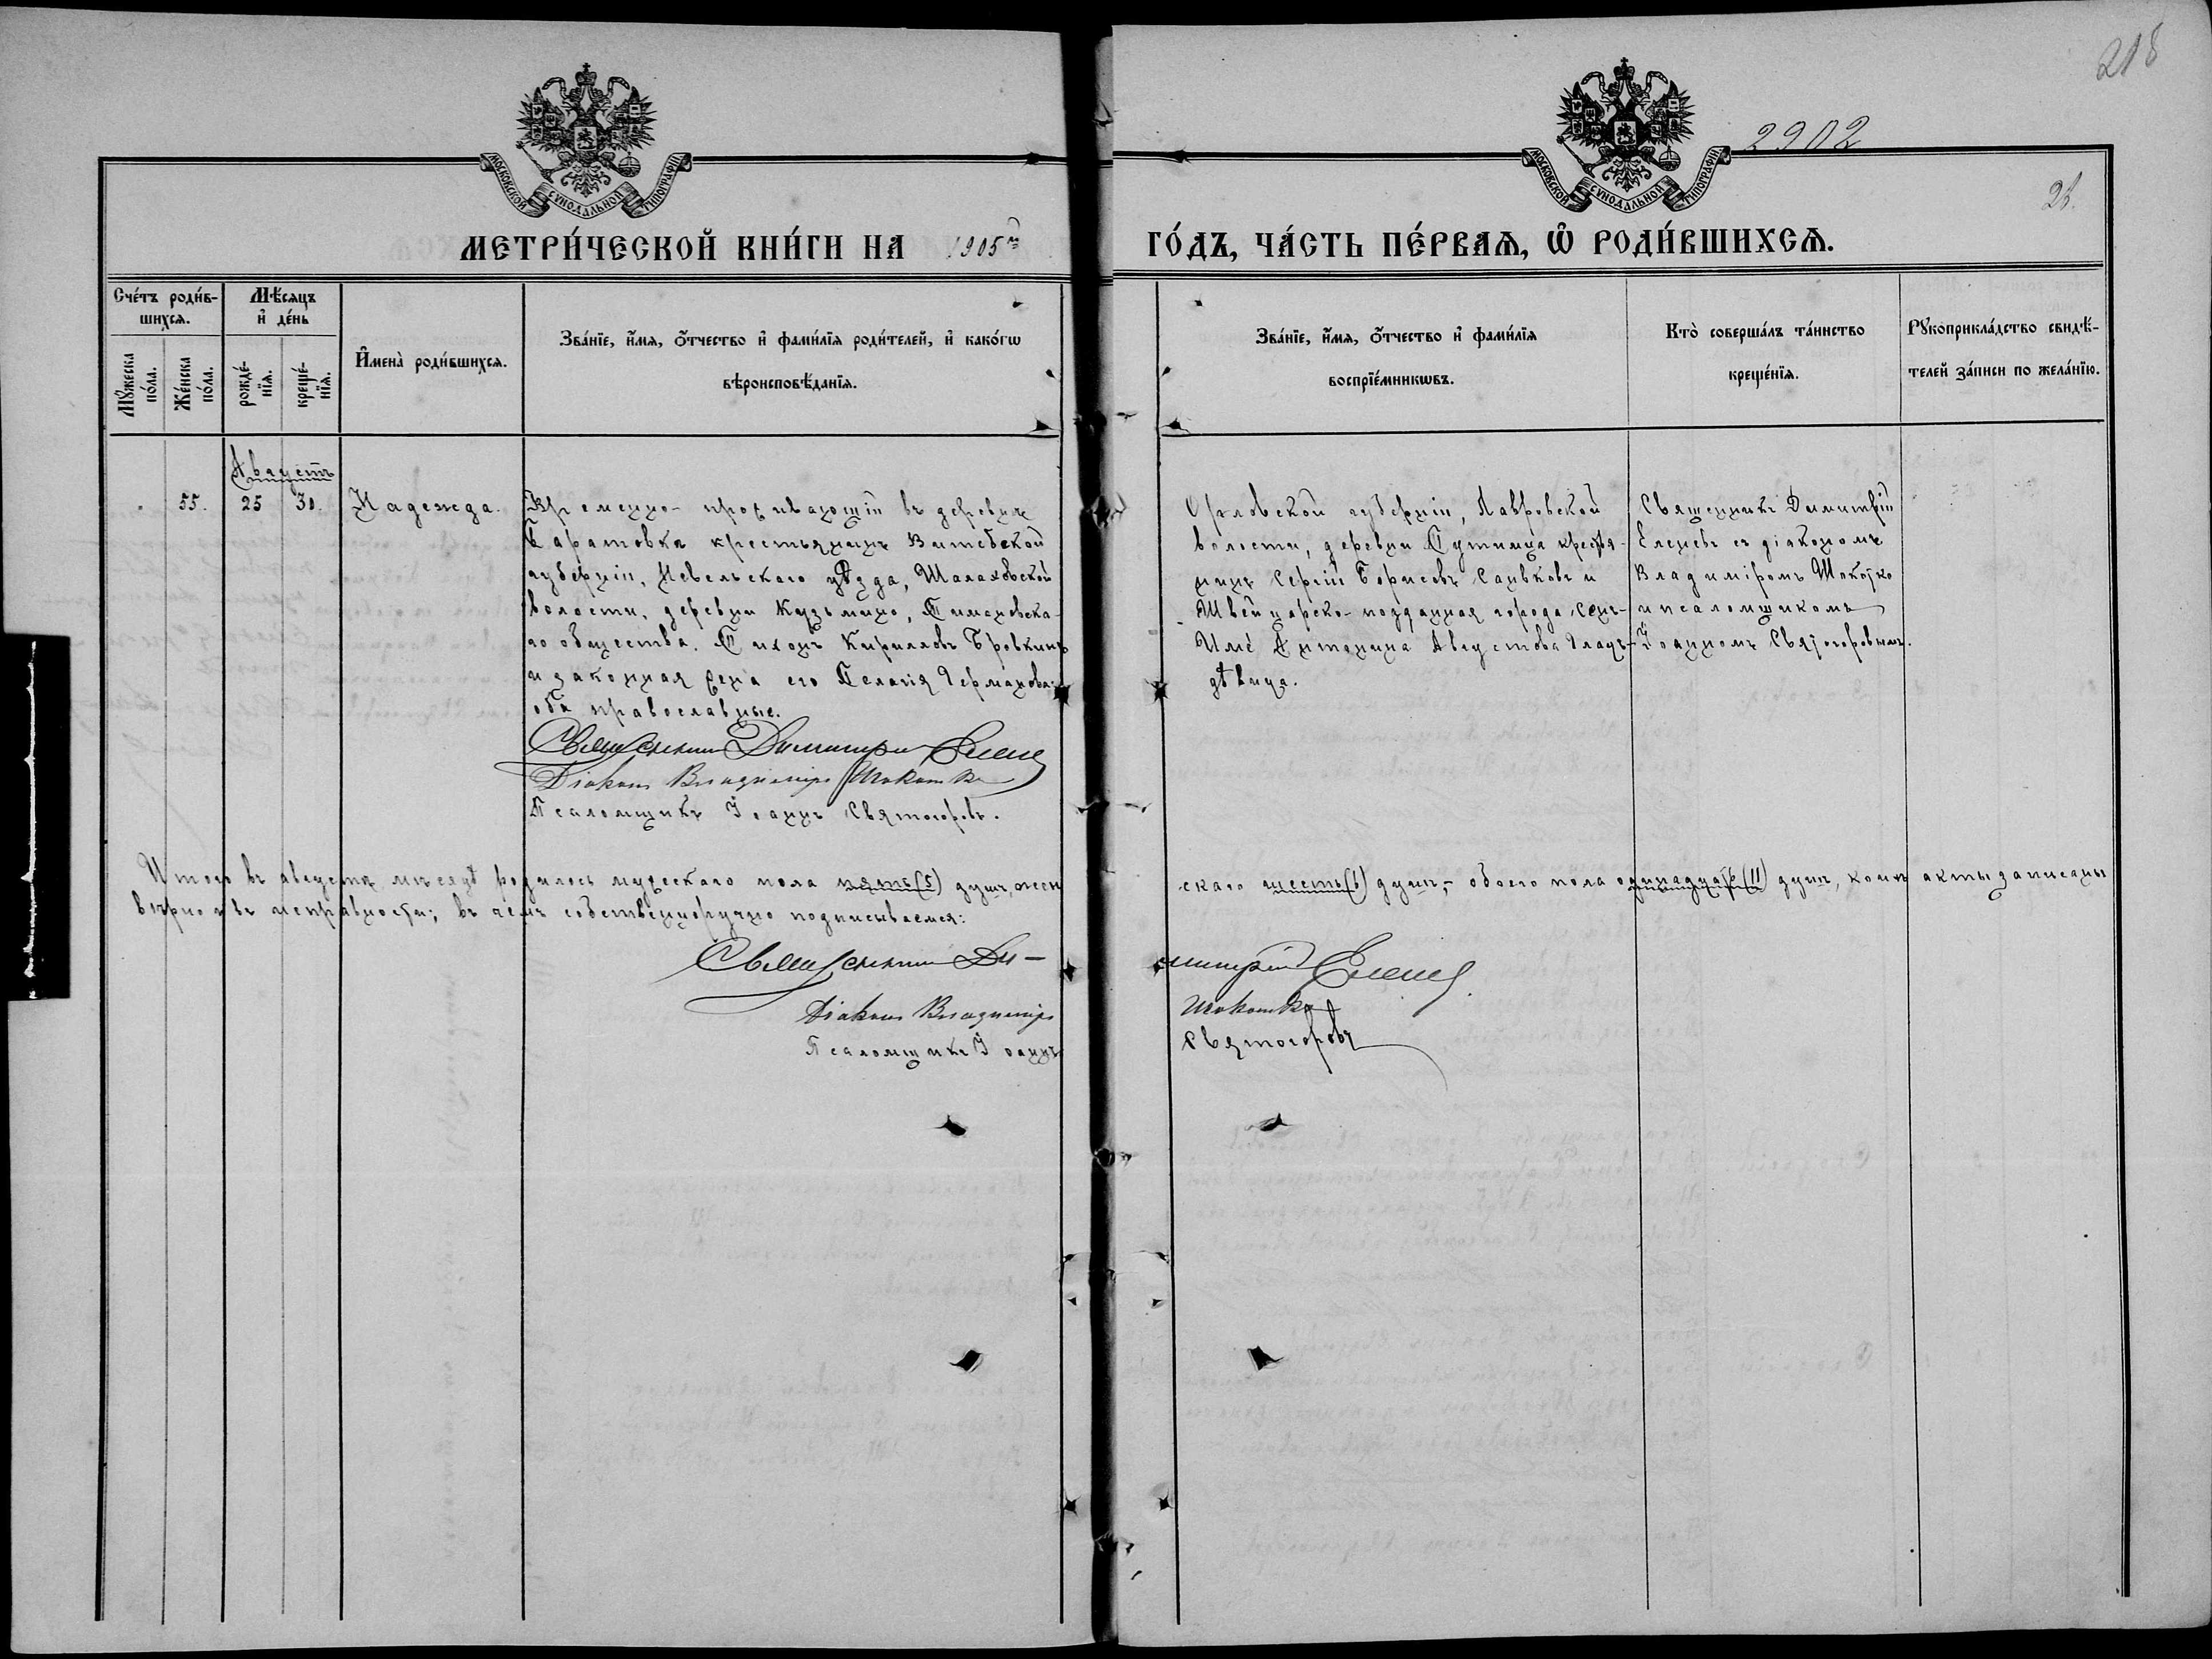 218
2902
26.
МОСКОВСКОЙ СѴНОДАЛЬНОЙ ТИПОГРАФІИ
МОСКОВСКОЙ СѴНОДАЛЬНОЙ ТИПОГРАФІИ
МЕТРИ́ЧЕСКОЙ КНИ́ГИ НА 1905 й
ГО́ДЪ, ЧА́СТЬ ПЕ́РВАѦ, Ѡ҆ РОДИ́ВШИХСѦ.
Сче́тъ роди́в-
шихсѧ.
Мꙋ́жеска по́ла.
Же́нска по́ла.
Мѣ́сѧцъ
и҆ де́нь
рожде́-
нїѧ.
креще́-
нїѧ.
И҆мена̀ роди́вшихсѧ.
Зва́нїе, и҆́мѧ, ѻ҆́тчество и҆ фами́лїѧ роди́телей, и҆ како́гѡ
вѣроисповѣ́данїѧ.
Зва́нїе, и҆́мѧ, ѻ҆́тчество и҆ фами́лїѧ
воспрїе́мникѡвъ.
Кто̀ соверша́лъ та́инство
креще́нїѧ.
Рꙋкоприкла́дство свидѣ́-
телей за́писи по жела́нїю.
Августъ
55. 25 30. Надежда.
Временно-проживающій въ деревнѣ
Саратовкѣ крестьянинъ Витебской
губерніи, Невельскаго уѣзда, Шалаховской
волости, деревни Кузьмино, Симоновска-
го общества. Тихонъ Кирилловъ Бровкинъ
и законная жена его Пелагія Германова:
оба православные.
Священникъ Димитрій Еленевъ
Діаконъ Владиміръ
Псаломщикъ Іоаннъ Святогоровъ.
Орловской губерніи, Лавровской
волости, деревни крестья-
нинъ Сергій Борисовъ и
Швейцарско-подданная города Сенъ-
Имè Антонина Августова
дѣвица.
Священникъ Димитрій
Еленевъ съ діакономъ
Владиміромъ
и псаломщикомъ
Іоанномъ Святогоровымъ.
Итого въ августѣ мѣсяцѣ родилось мужескаго пола пять (5) душъ, женскаго шесть (6) душъ, – обоего пола одинадцать (11) душъ, коихъ акты записаны
вѣрно и въ исправности; въ чемъ собственноручно подписываемся:
Священникъ Димитрій Еленевъ.
Діаконъ Владиміръ
Псаломщикъ Іоаннъ Святогоровъ